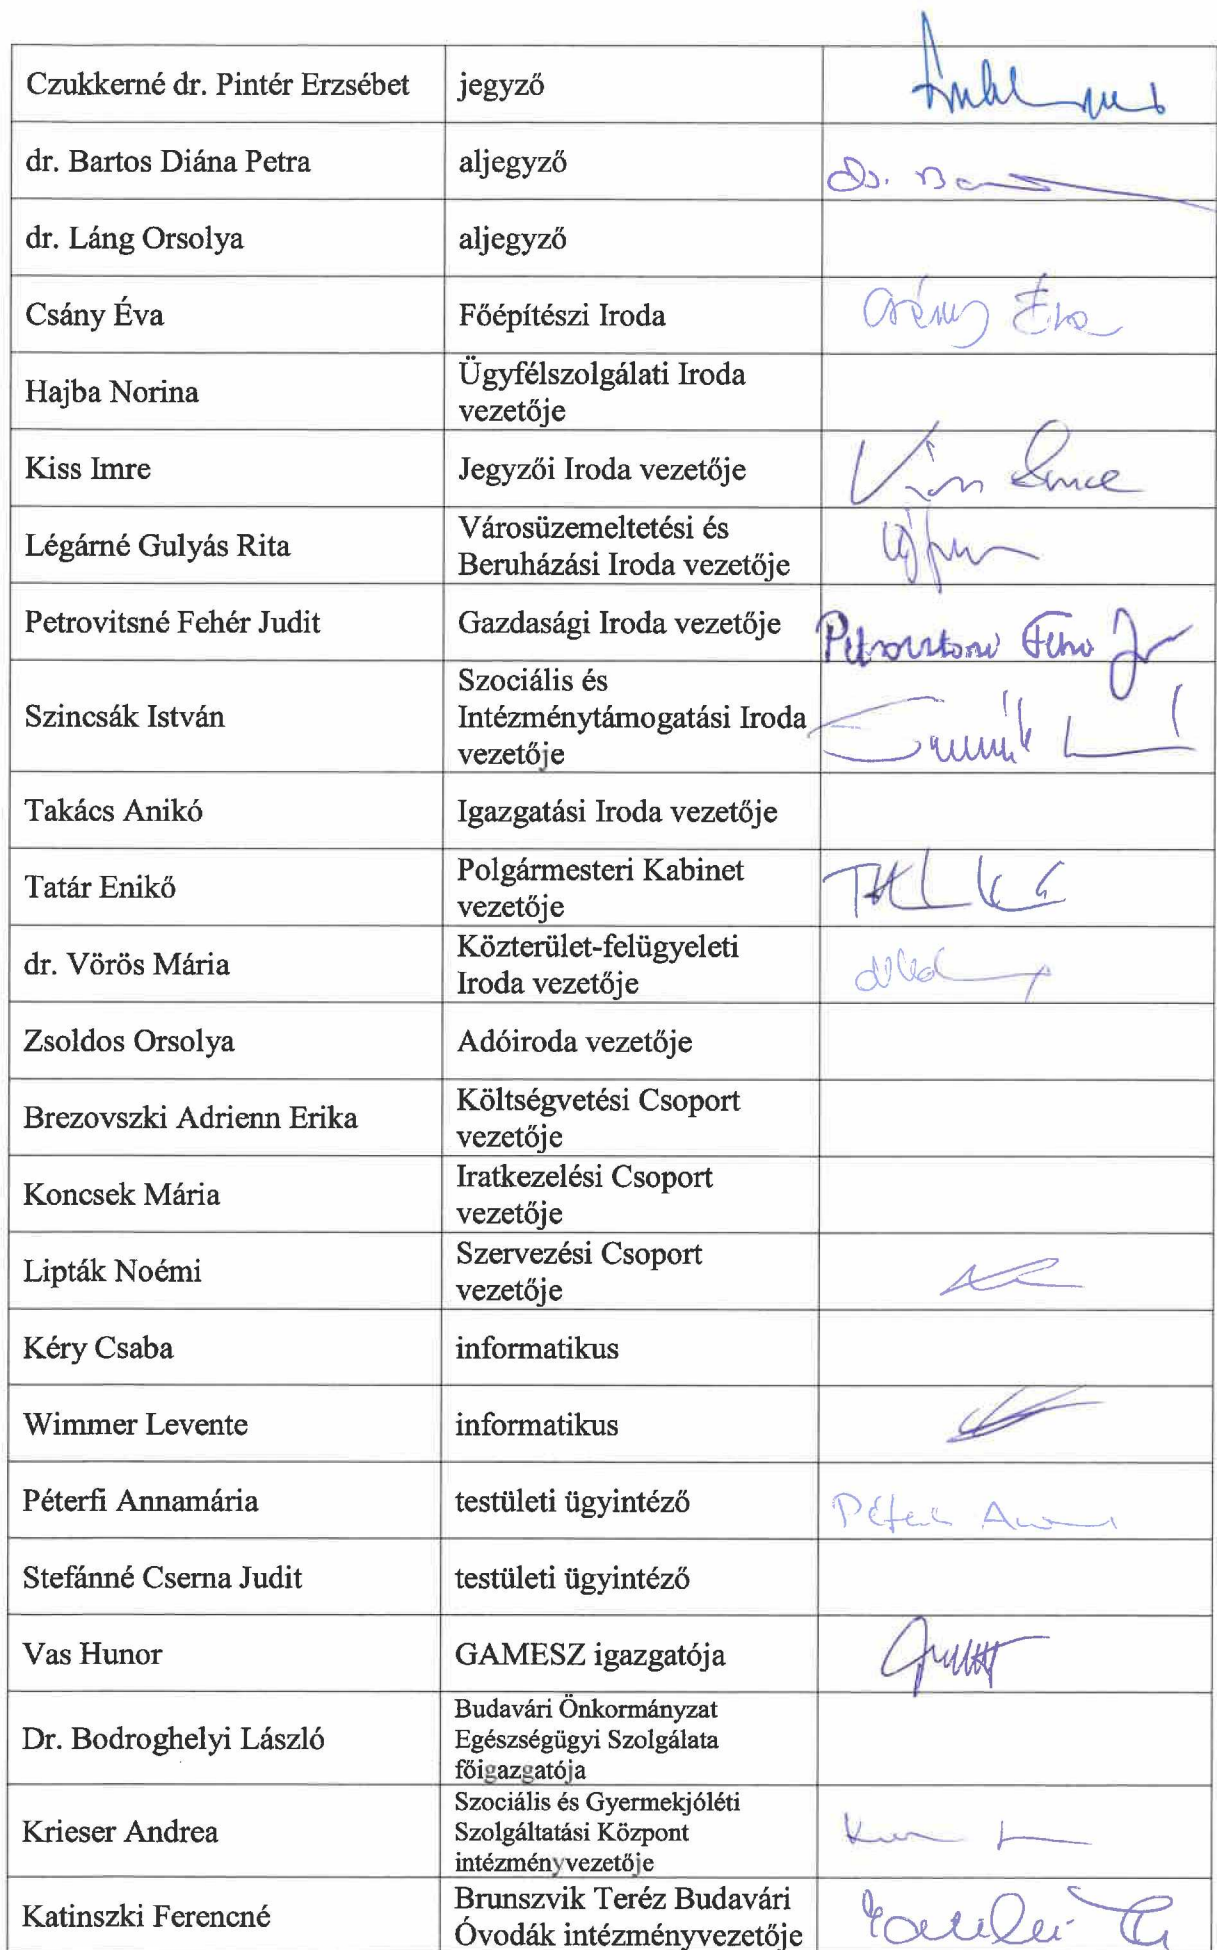 Czukkerné dr. Pintér Erzsébet jegyző
dr. Bartos Diána Petra aljegyző Dr. Ba
dr. Láng Orsolya aljegyző
Csány Éva Főépítészi Iroda Csány Éva
Hajba Norina Ügyfélszolgálati Iroda
vezetője
Kiss Imre Jegyzői Iroda vezetője Kiss Imre
Légárné Gulyás Rita Városüzemeltetési és
Beruházási Iroda vezetője
Petrovitsné Fehér Judit Gazdasági Iroda vezetője Petrovitsné Fehér J
Szincsák István Szociális és
Intézménytámogatási Iroda
vezetője
Takács Anikó Igazgatási Iroda vezetője
Tatár Enikő Polgármesteri Kabinet
vezetője
dr. Vörös Mária Közterület-felügyeleti
Iroda vezetője
Zsoldos Orsolya Adóiroda vezetője
Brezovszki Adrienn Erika Költségvetési Csoport
vezetője
Koncsek Mária Iratkezelési Csoport
vezetője
Lipták Noémi Szervezési Csoport
vezetője
Kéry Csaba informatikus
Wimmer Levente informatikus
Péterfi Annamária testületi ügyintéző
Stefánné Cserna Judit testületi ügyintéző
Vas Hunor GAMESZ igazgatója
Dr. Bodroghelyi László Budavári Önkormányzat
Egészségügyi Szolgálata
főigazgatója
Krieser Andrea Szociális és Gyermekjóléti
Szolgáltatási Központ
intézményvezetője
Katinszki Ferencné Brunszvik Teréz Budavári
Óvodák intézményvezetője